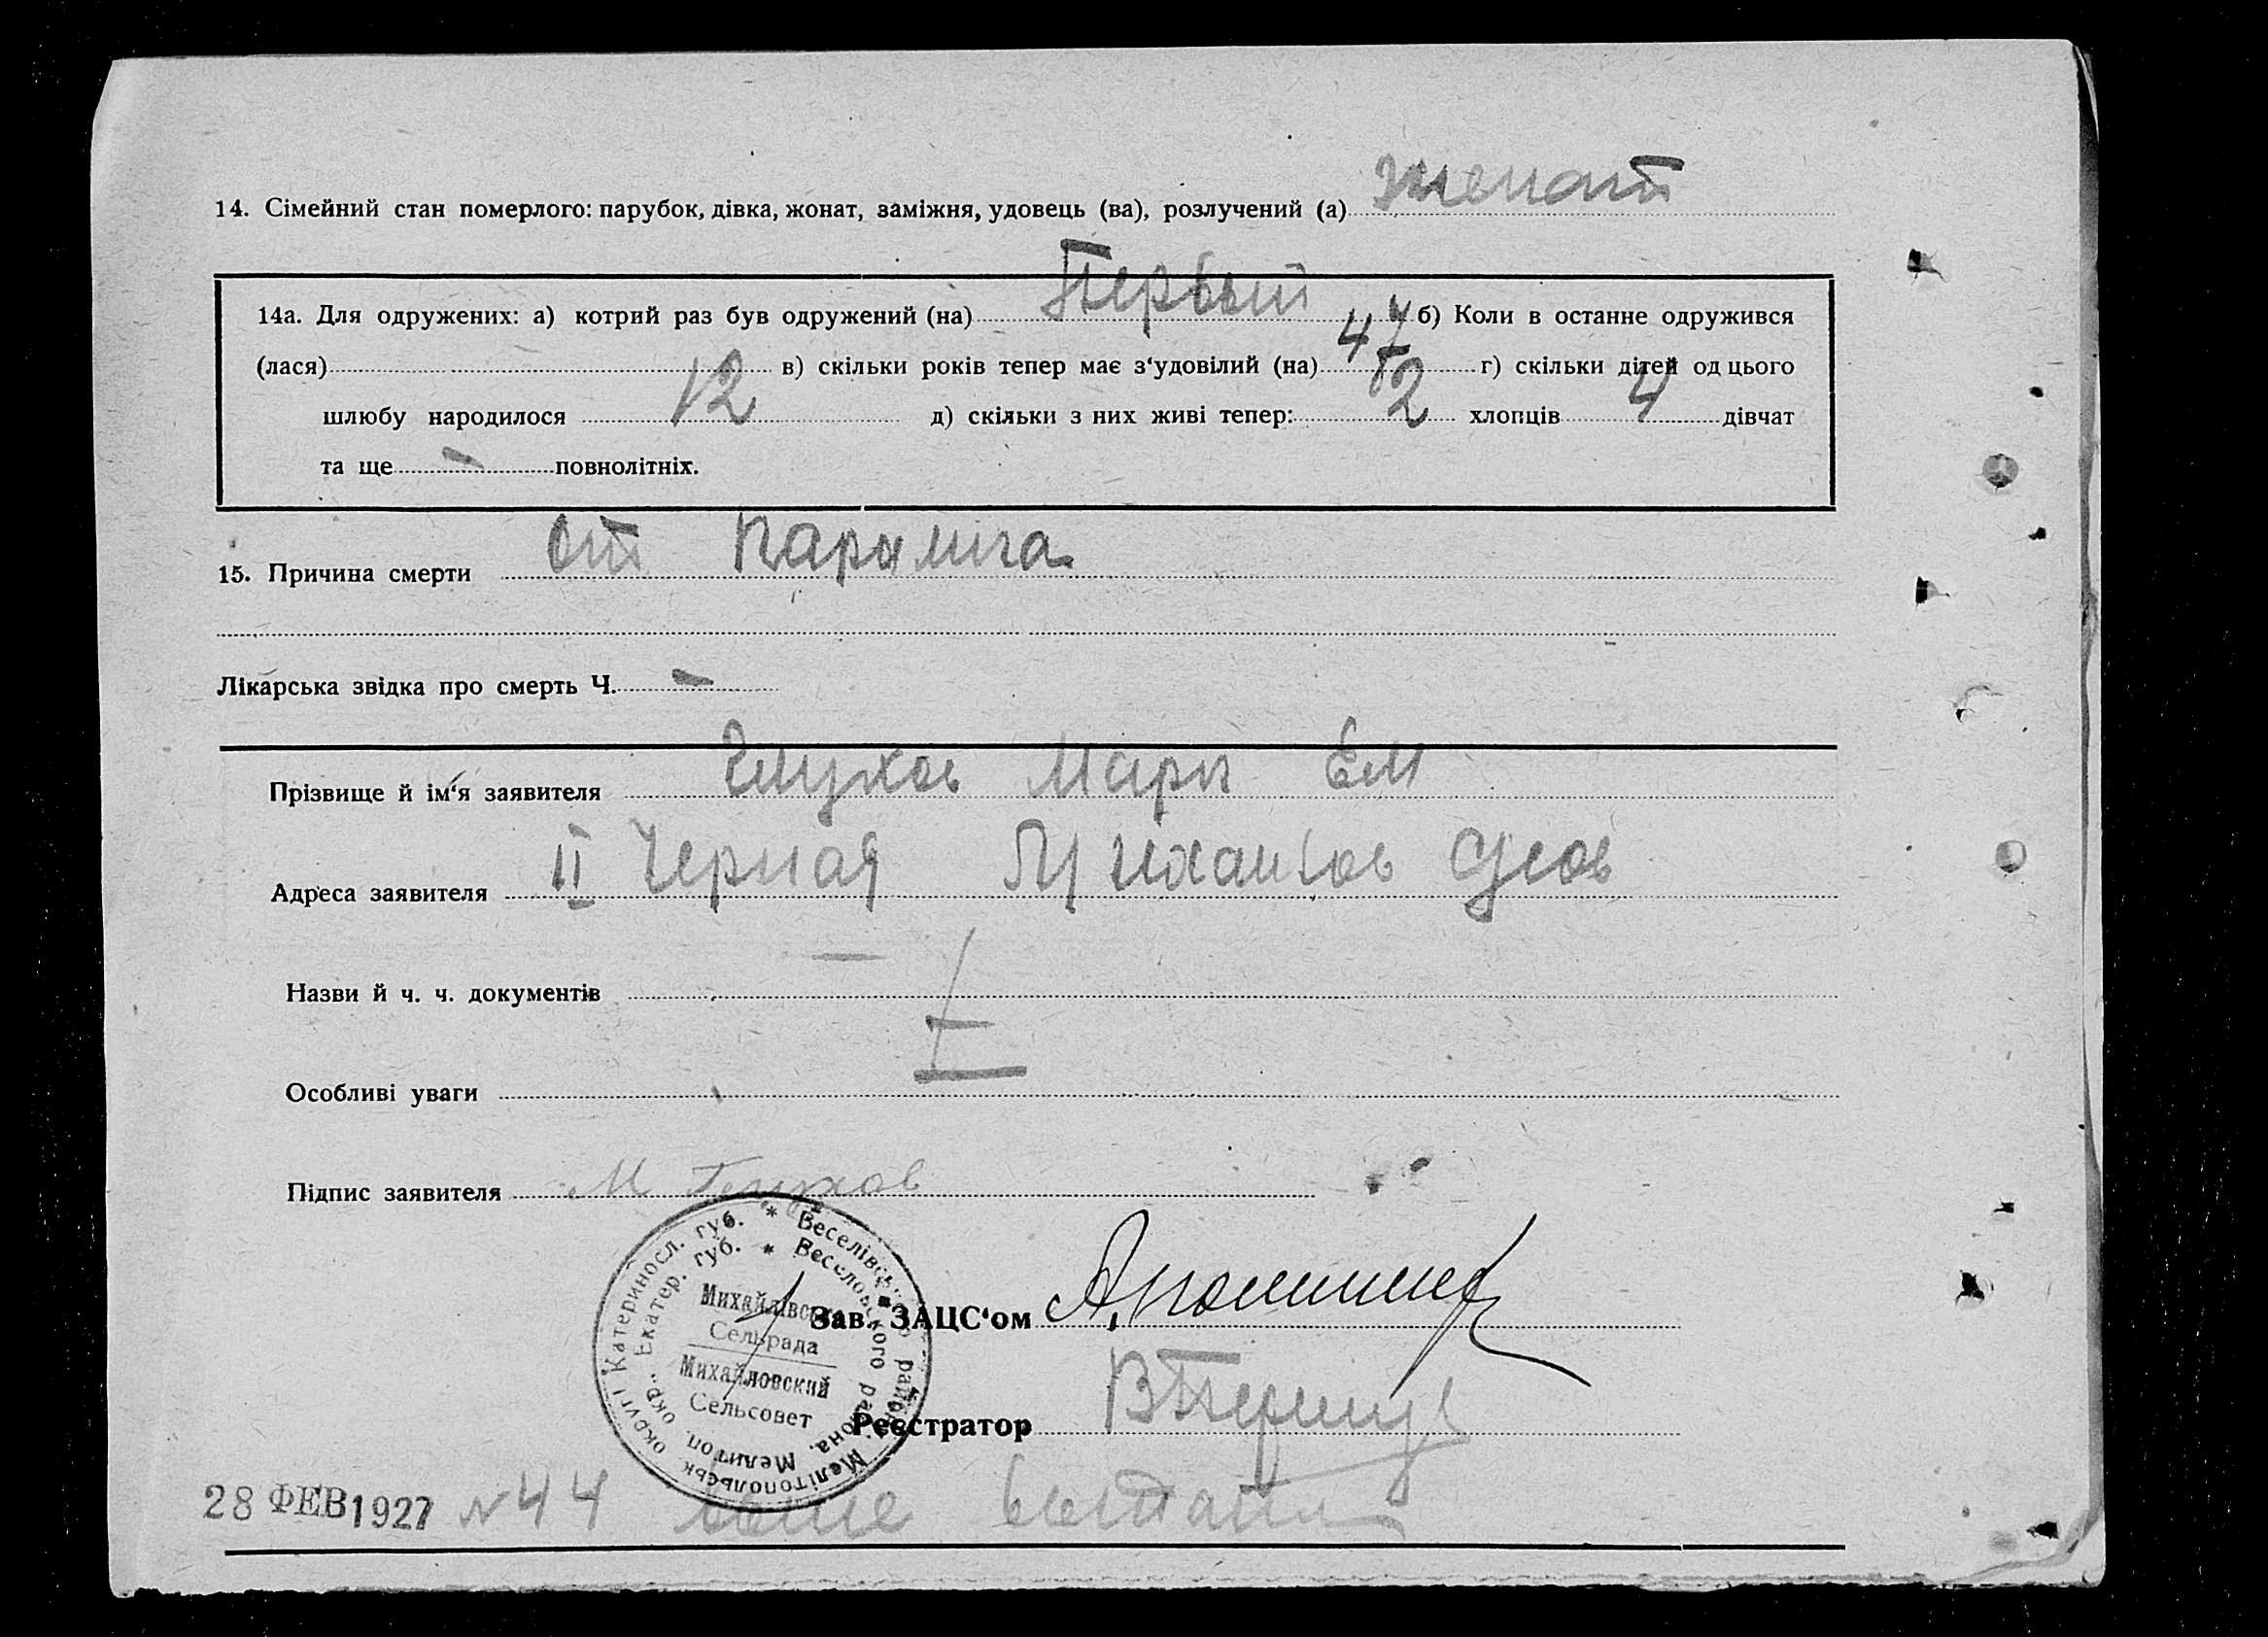 14. Сімейний стан померлого: парубок, дівка, жонат, заміжня, удовець (ва), розлучений (а) женат
14а. Для одружених: а) котрий раз був одружений (на) Первый б) Коли в останнє одружився
(лася) в) скільки років тепер має з‘удовілий (на) 47 г) скільки дітей од цього
шлюбу народилося 12 д) скільки з них живі тепер: 2 хлопців 4 дівчат
та ще - повнолітніх.
15. Причина смерти от
Лікарська звідка про смерть Ч. -
Прізвище й ім‘я заявителя Глухов Марк Ем
Адреса заявителя II Черная
Назви й ч. ч. документів —
Особливі уваги
Підпис заявителя М Глухов
Зав. ЗАЦС‘ом
Реєстратор
Катериносл. губ. * Веселівського району, Мелітопольськ. округі
Екатер. губ. * Веселовского района, Мелитоп. окр.
Михайлівська
Сельрада
Михайловский
Сельсовет
28 ФЕВ 1927 N 44